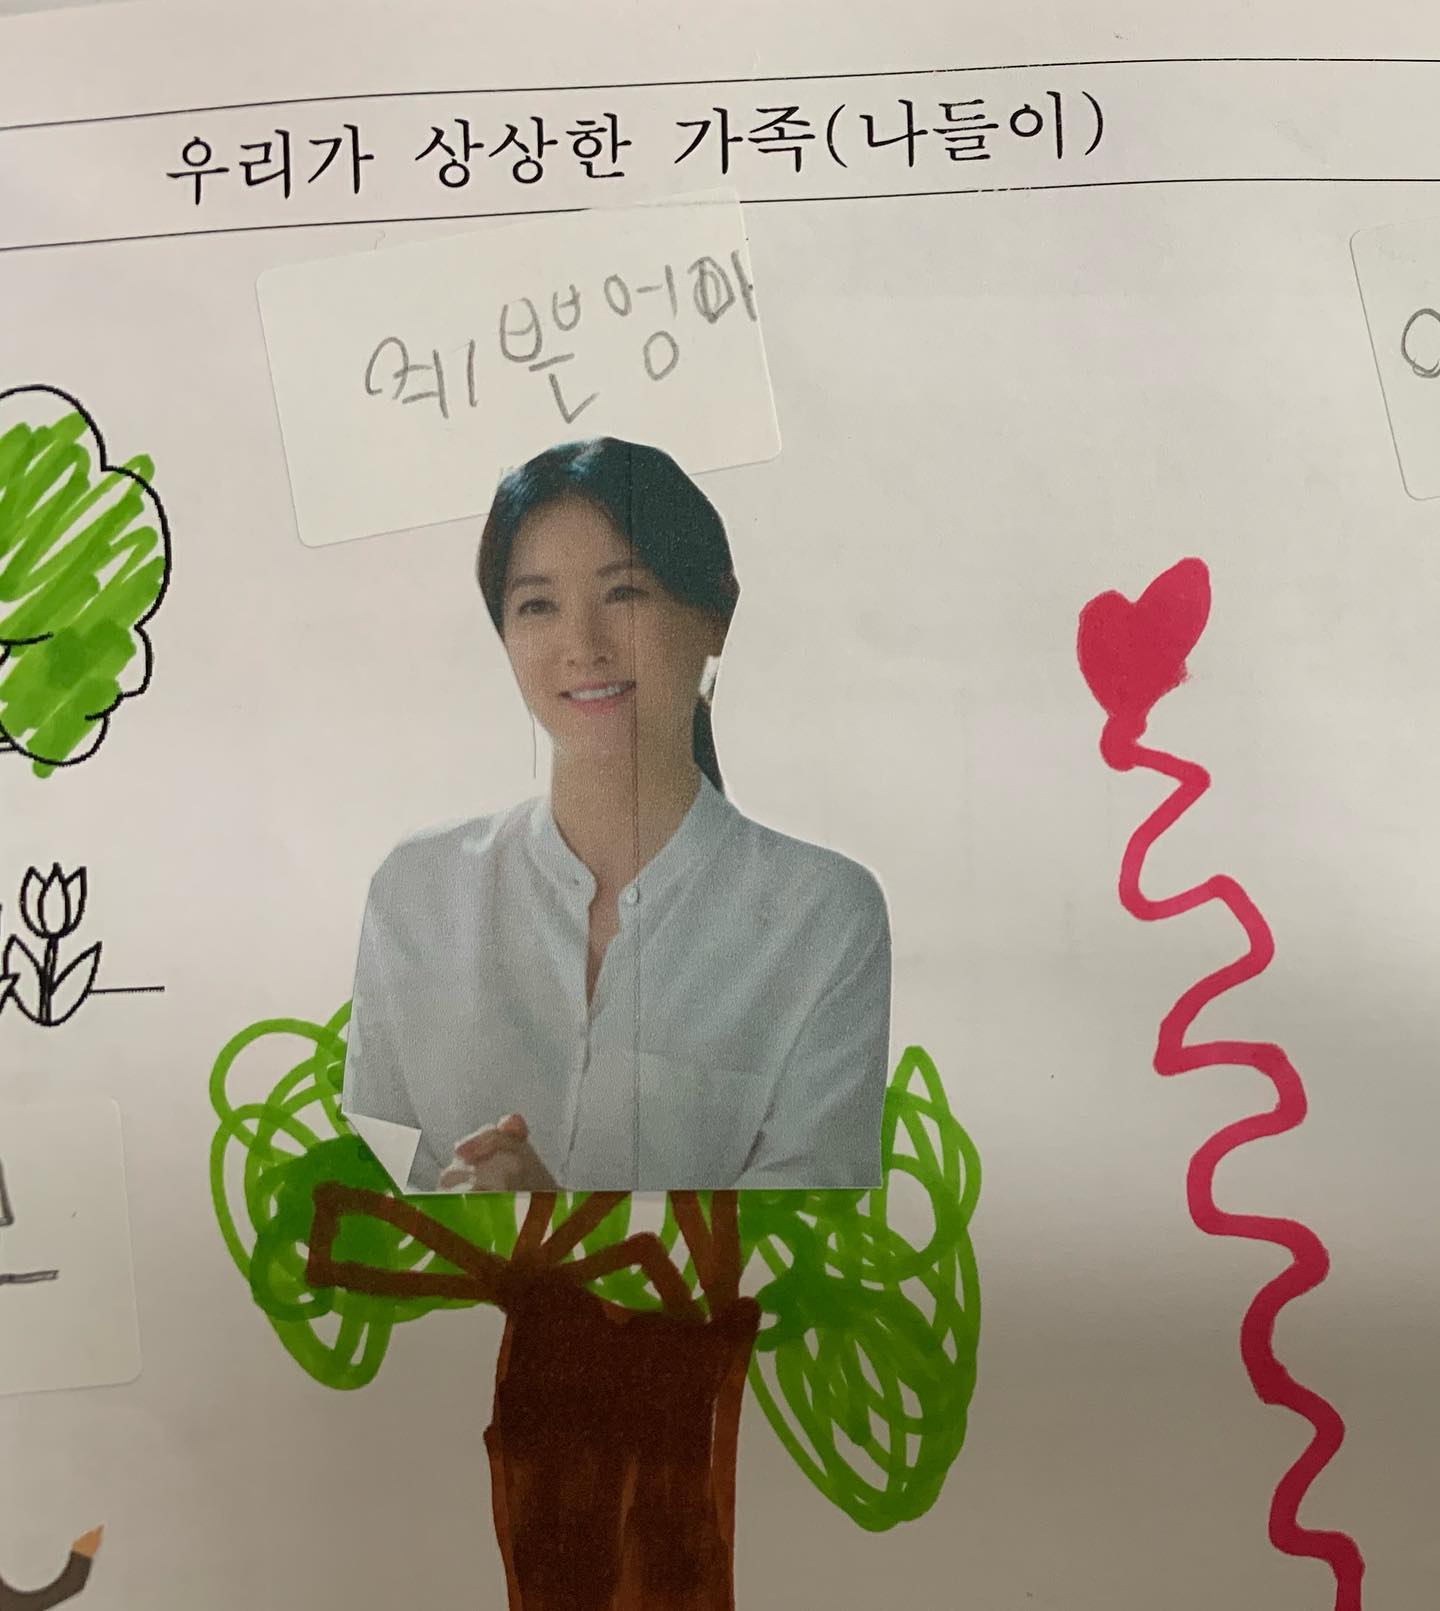 우리가 상상한 가족(나들이)
예쁜엉마